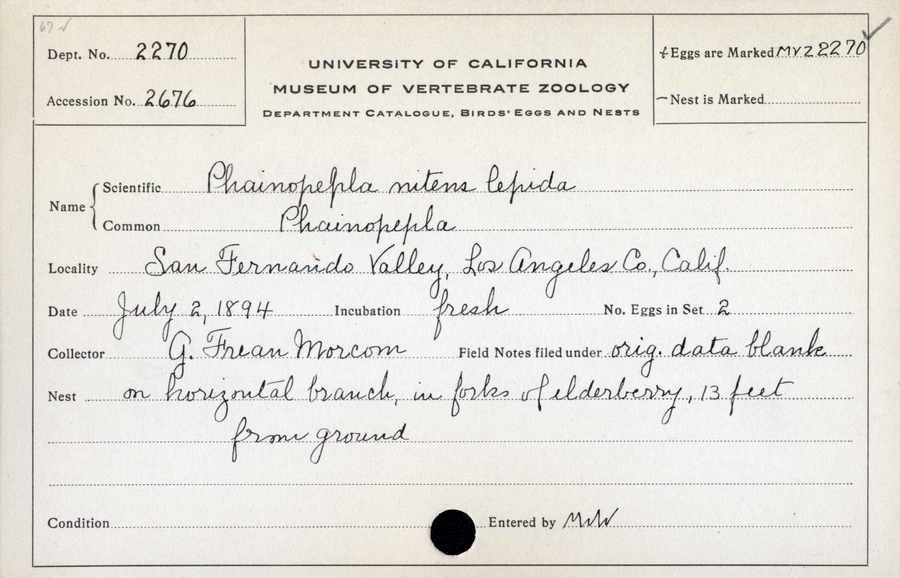 67 ✓
Dept. No. 2270
Accession No. 2676
UNIVERSITY OF CALIFORNIA
MUSEUM OF VERTEBRATE ZOOLOGY
DEPARTMENT CATALOGUE, BIRDS' EGGS AND NESTS
+Eggs are Marked MVZ 2270 ✓
—Nest is Marked
Name
Scientific Phainopepla nitens lepida
Common Phainopepla
Locality San Fernando Valley, Los Angeles Co., Calif.
Date July 2, 1894 Incubation fresh No. Eggs in Set 2
Collector G. Frean Morcom Field Notes filed under orig. data blank
Nest on horizontal branch, in forks of elderberry, 13 feet
from ground
Condition Entered by